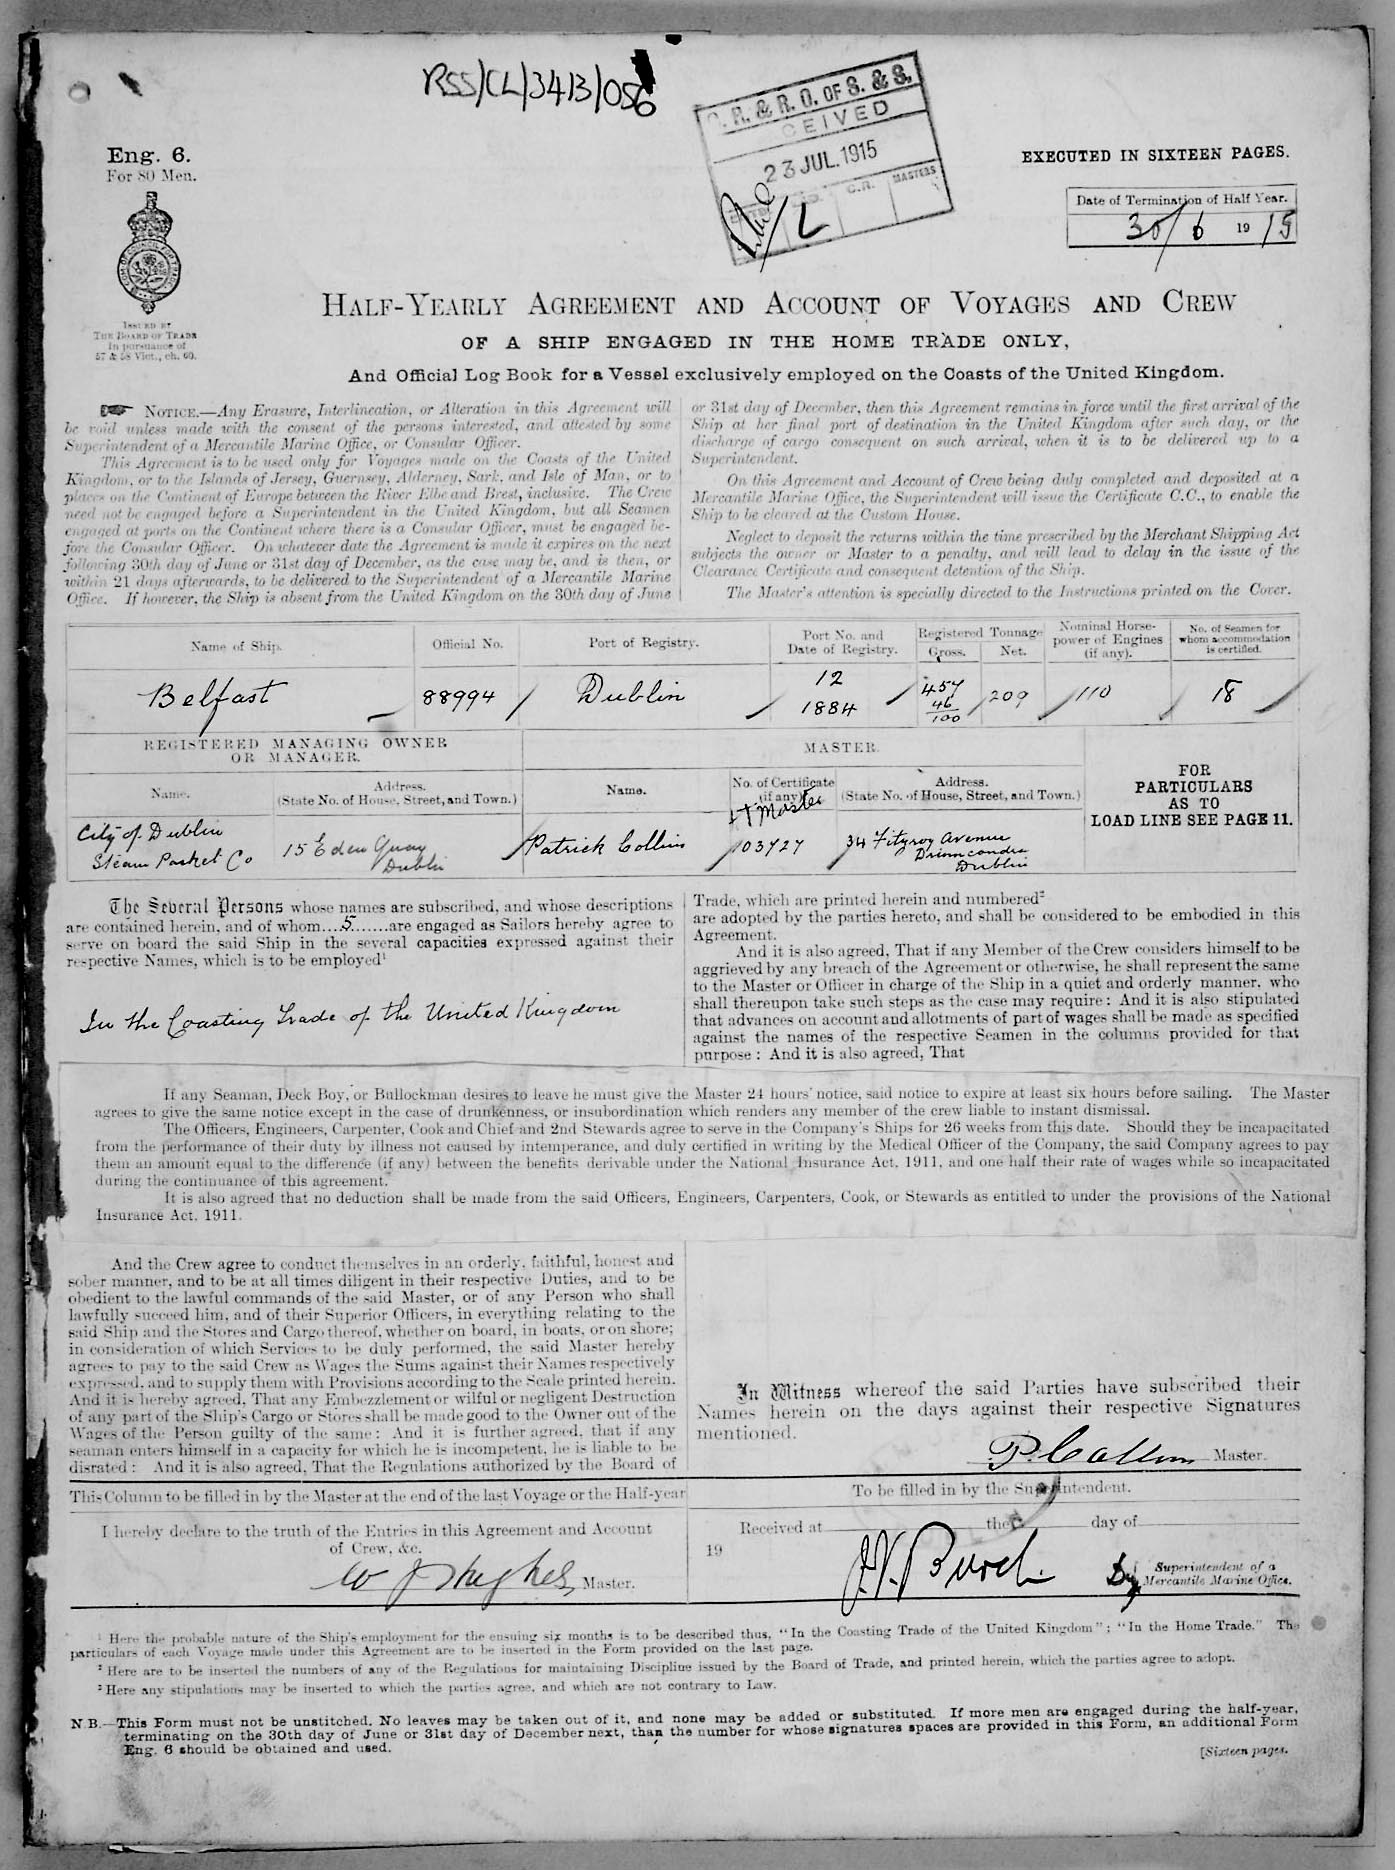 RSS/CL/3413/056
R. & R. O. OF S. & S.
CEIVED
23 JUL. 1915
C.R.
MASTERS
L
Eng. 6.
For 80 Men.
EXECUTED IN SIXTEEN PAGES.
Date of Termination of Half Year.
30/6 19 15
ISSUED BY
THE BOARD OF TRADE
In pursuance of
57 & 58 Vict., ch. 60.
HALF-YEARLY AGREEMENT AND ACCOUNT OF VOYAGES AND CREW
OF A SHIP ENGAGED IN THE HOME TRADE ONLY,
And Official Log Book for a Vessel exclusively employed on the Coasts of the United Kingdom.
NOTICE.—Any Erasure, Interlineation, or Alteration in this Agreement will
be void unless made with the consent of the persons interested, and attested by some
Superintendent of a Mercantile Marine Office, or Consular Officer.
This Agreement is to be used only for Voyages made on the Coasts of the United
Kingdom, or to the Islands of Jersey, Guernsey, Alderney, Sark, and Isle of Man, or to
places on the Continent of Europe between the River Elbe and Brest, inclusive. The Crew
need not be engaged before a Superintendent in the United Kingdom, but all Seamen
engaged at ports on the Continent where there is a Consular Officer, must be engaged be-
fore the Consular Officer. On whatever date the Agreement is made it expires on the next
following 30th day of June or 31st day of December, as the case may be, and is then, or
within 21 days afterwards, to be delivered to the Superintendent of a Mercantile Marine
Office. If however, the Ship is absent from the United Kingdom on the 30th day of June
or 31st day of December, then this Agreement remains in force until the first arrival of the
Ship at her final port of destination in the United Kingdom after such day, or the
discharge of cargo consequent on such arrival, when it is to be delivered up to a
Superintendent.
On this Agreement and Account of Crew being duly completed and deposited at a
Mercantile Marine Office, the Superintendent will issue the Certificate C.C., to enable the
Ship to be cleared at the Custom House.
Neglect to deposit the returns within the time prescribed by the Merchant Shipping Act
subjects the owner or Master to a penalty, and will lead to delay in the issue of the
Clearance Certificate and consequent detention of the Ship.
The Master's attention is specially directed to the Instructions printed on the Cover.
Name of Ship.
Official No.
Port of Registry.
Port No. and
Date of Registry.
Registered Tonnage
Gross.
Net.
Nominal Horse-
power of Engines
(if any).
No. of Seamen for
whom accommodation
is certified.
Belfast
88994
Dublin
12
1884
457
46
100
209
110
18
REGISTERED MANAGING OWNER
OR MANAGER.
MASTER.
Name.
Address.
(State No. of House, Street, and Town.)
Name.
No. of Certificate
(if any)
Address.
(State No. of House, Street, and Town.)
FOR
PARTICULARS
AS TO
LOAD LINE SEE PAGE 11.
Master
City of Dublin
Steam Packet Co
15 Eden Quay
Dublin
Patrick Collins
103727
34 Fitzroy Avenue
Drumcondra
Dublin
The Several Persons whose names are subscribed, and whose descriptions
are contained herein, and of whom....5.......are engaged as Sailors hereby agree to
serve on board the said Ship in the several capacities expressed against their
respective Names, which is to be employed¹
In the Coasting Trade of the United Kingdom
Trade, which are printed herein and numbered²
are adopted by the parties hereto, and shall be considered to be embodied in this
Agreement.
And it is also agreed, That if any Member of the Crew considers himself to be
aggrieved by any breach of the Agreement or otherwise, he shall represent the same
to the Master or Officer in charge of the Ship in a quiet and orderly manner, who
shall thereupon take such steps as the case may require: And it is also stipulated
that advances on account and allotments of part of wages shall be made as specified
against the names of the respective Seamen in the columns provided for that
purpose: And it is also agreed, That
If any Seaman, Deck Boy, or Bullockman desires to leave he must give the Master 24 hours' notice, said notice to expire at least six hours before sailing. The Master
agrees to give the same notice except in the case of drunkenness, or insubordination which renders any member of the crew liable to instant dismissal.
The Officers, Engineers, Carpenter, Cook and Chief and 2nd Stewards agree to serve in the Company's Ships for 26 weeks from this date. Should they be incapacitated
from the performance of their duty by illness not caused by intemperance, and duly certified in writing by the Medical Officer of the Company, the said Company agrees to pay
them an amount equal to the difference (if any) between the benefits derivable under the National Insurance Act, 1911, and one half their rate of wages while so incapacitated
during the continuance of this agreement.
It is also agreed that no deduction shall be made from the said Officers, Engineers, Carpenters, Cook, or Stewards as entitled to under the provisions of the National
Insurance Act, 1911.
And the Crew agree to conduct themselves in an orderly, faithful, honest and
sober manner, and to be at all times diligent in their respective Duties, and to be
obedient to the lawful commands of the said Master, or of any Person who shall
lawfully succeed him, and of their Superior Officers, in everything relating to the
said Ship and the Stores and Cargo thereof, whether on board, in boats, or on shore;
in consideration of which Services to be duly performed, the said Master hereby
agrees to pay to the said Crew as Wages the Sums against their Names respectively
expressed, and to supply them with Provisions according to the Scale printed herein.
And it is hereby agreed, That any Embezzlement or wilful or negligent Destruction
of any part of the Ship's Cargo or Stores shall be made good to the Owner out of the
Wages of the Person guilty of the same: And it is further agreed, that if any
seaman enters himself in a capacity for which he is incompetent, he is liable to be
disrated: And it is also agreed, That the Regulations authorized by the Board of
In Witness whereof the said Parties have subscribed their
Names herein on the days against their respective Signatures
mentioned.
P. Collins Master.
This Column to be filled in by the Master at the end of the last Voyage or the Half-year
I hereby declare to the truth of the Entries in this Agreement and Account
of Crew, &c.
W J Hughes, Master.
To be filled in by the Superintendent.
Received at the day of
19
J.V. Burch Dy Superintendent of a
Mercantile Marine Office.
¹ Here the probable nature of the Ship's employment for the ensuing six months is to be described thus, "In the Coasting Trade of the United Kingdom"; "In the Home Trade." The
particulars of each Voyage made under this Agreement are to be inserted in the Form provided on the last page.
² Here are to be inserted the numbers of any of the Regulations for maintaining Discipline issued by the Board of Trade, and printed herein, which the parties agree to adopt.
³ Here any stipulations may be inserted to which the parties agree, and which are not contrary to Law.
N.B.—This Form must not be unstitched. No leaves may be taken out of it, and none may be added or substituted. If more men are engaged during the half-year,
terminating on the 30th day of June or 31st day of December next, than the number for whose signatures spaces are provided in this Form, an additional Form
Eng. 6 should be obtained and used.
[Sixteen pages.